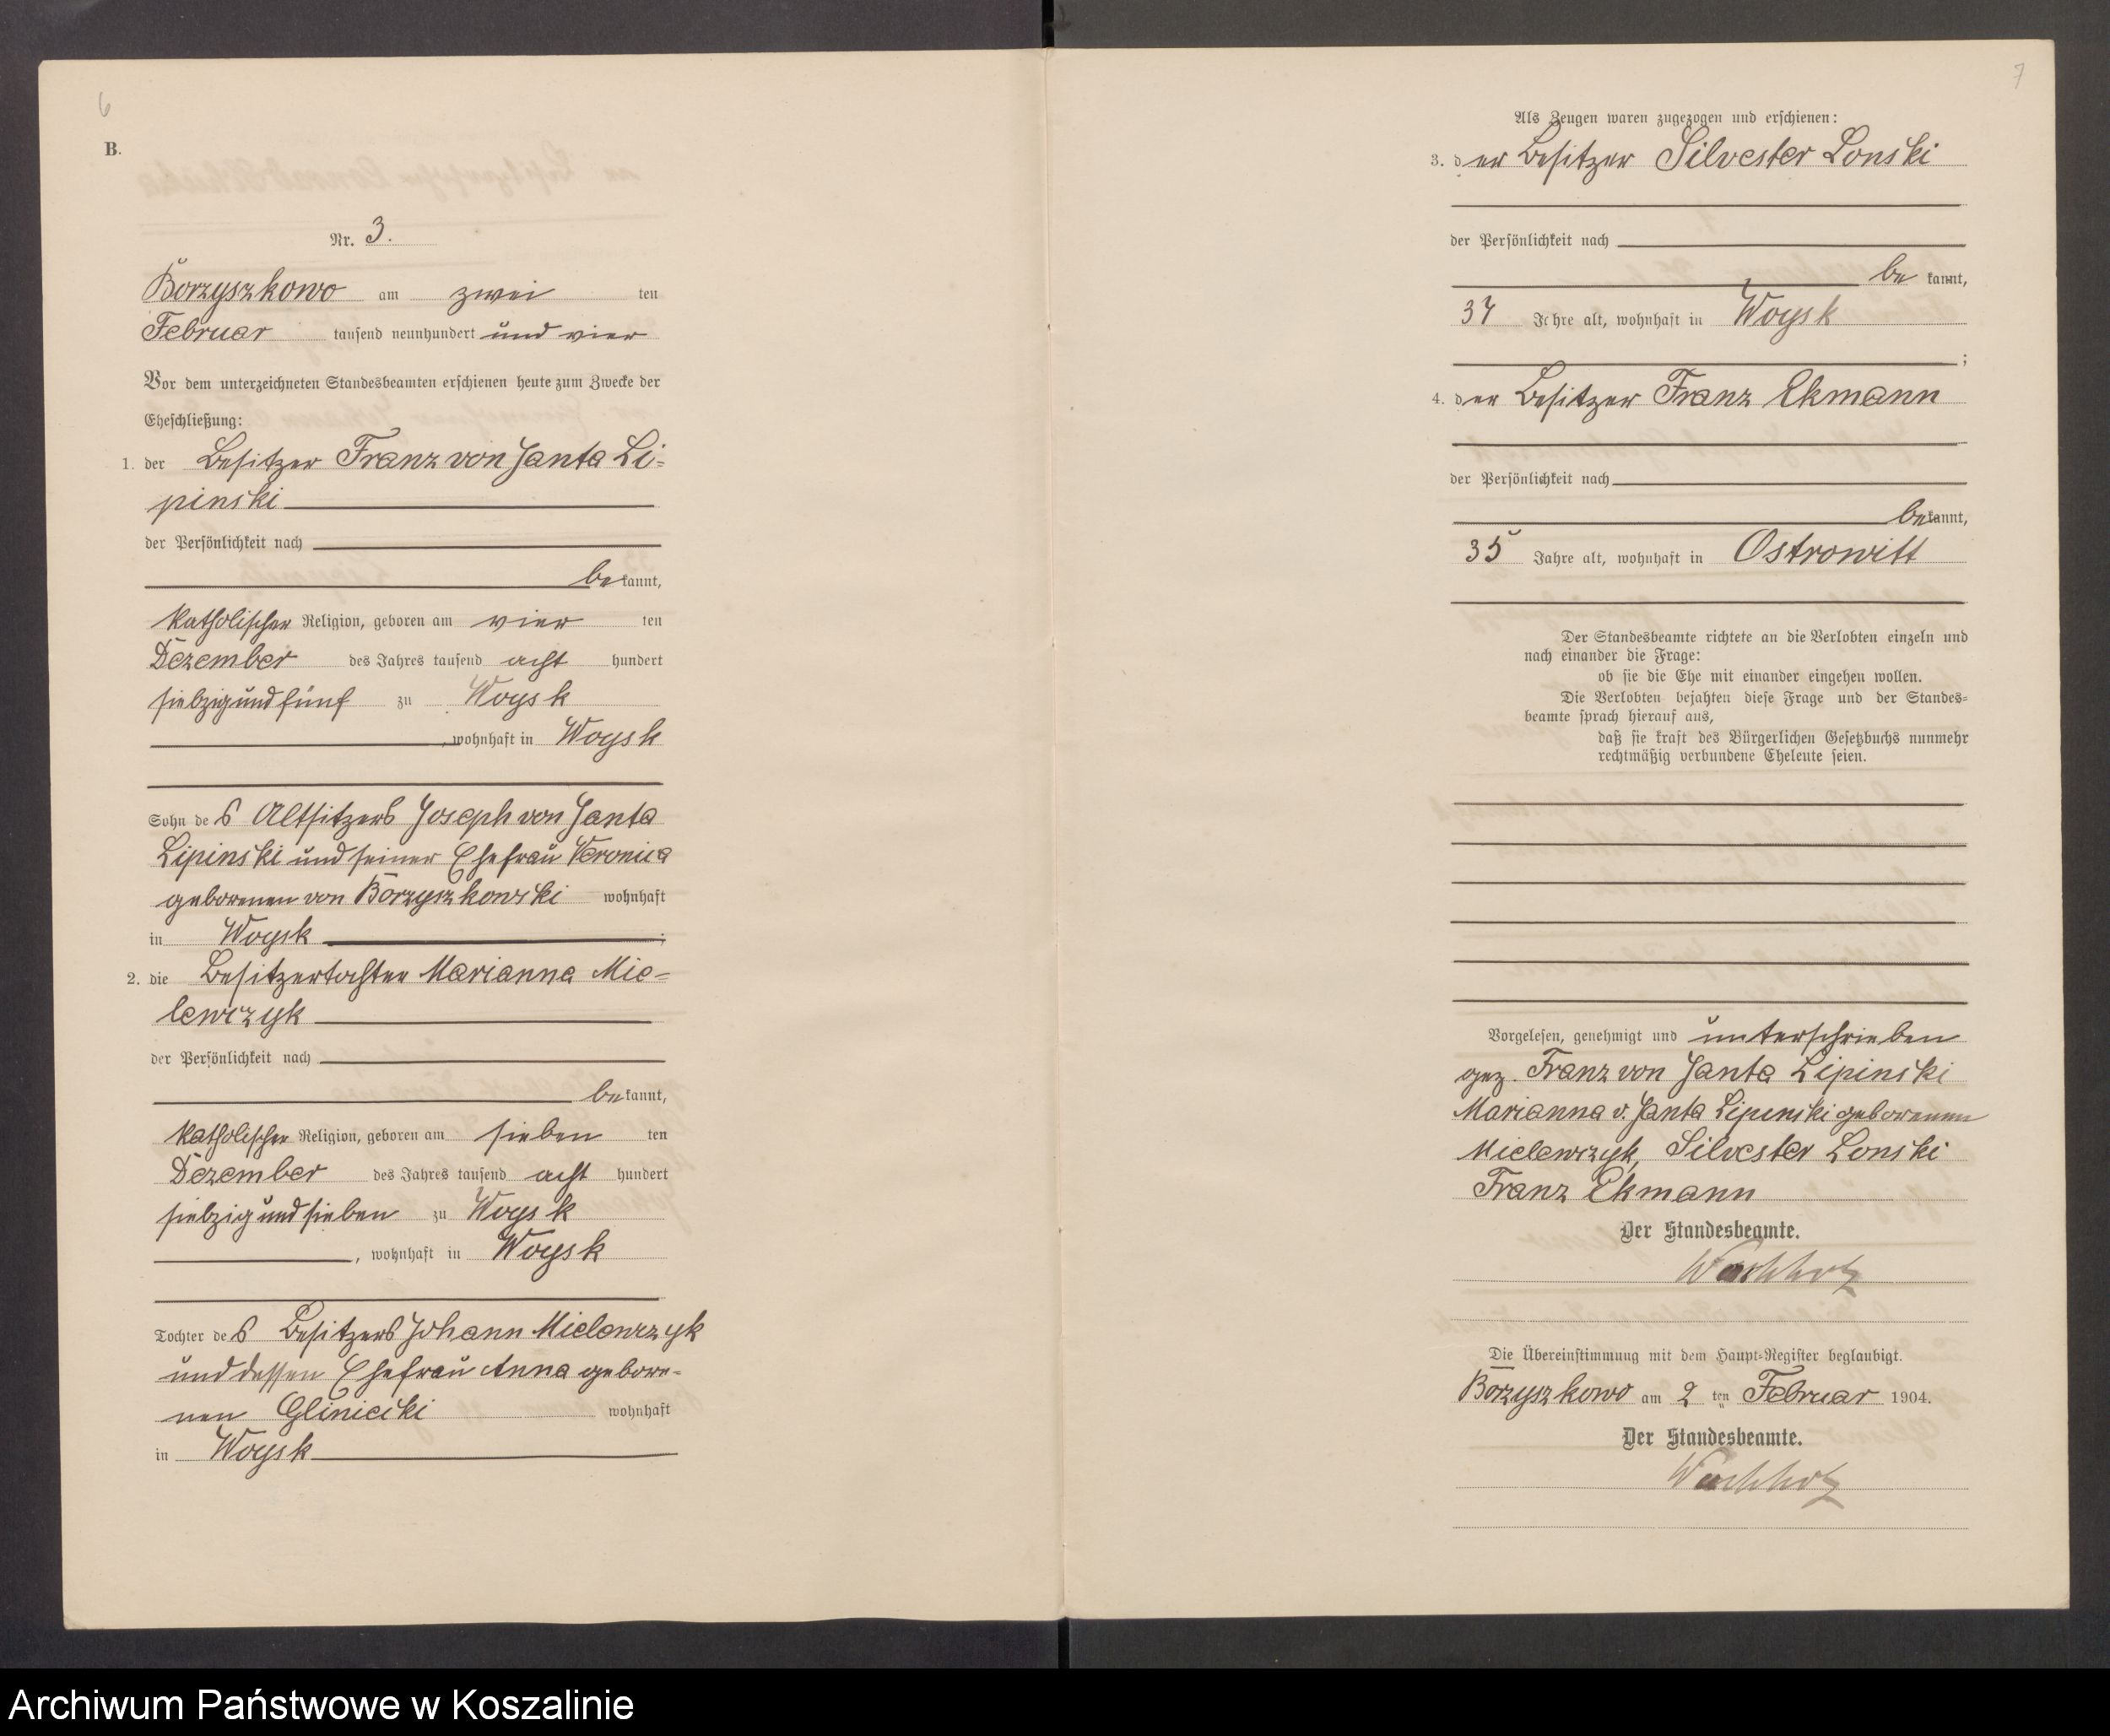 6
B.
Nr. 3.
Borzyszkowo am zwei ten
Februar tausend neunhundert und vier
Vor dem unterzeichneten Standesbeamten erschienen heute zum Zwecke der
Eheschließung:
1. der Besitzer Franz von Janta Li=
pinski
der Persönlichkeit nach
bekannt,
katholischer Religion, geboren am vier ten
Dezember des Jahres tausend acht hundert
siebzig und fünf zu Woysk
, wohnhaft in Woysk
Sohn des Altsitzers Joseph von Janta
Lipinski und seiner Ehefrau Veronica
geborenen von Borzyszkowski wohnhaft
in Woysk ;
2. die Besitzertochter Marianna Mie=
lewczyk
der Persönlichkeit nach
bekannt,
katholischer Religion, geboren am sieben ten
Dezember des Jahres tausend acht hundert
siebzig und sieben zu Woysk
, wohnhaft in Woysk
Tochter des Besitzers Johann Mielewczyk
und dessen Ehefrau Anna gebore-
nen wohnhaft
in Woysk
7
Als Zeugen waren zugezogen und erschienen:
3. der Besitzer Silvester Lonski
der Persönlichkeit nach
bekannt,
37 Jahre alt, wohnhaft in Woysk
;
4. der Besitzer Franz Ekmann
der Persönlichkeit nach
bekannt,
35 Jahre alt, wohnhaft in Ostrowitt
Der Standesbeamte richtete an die Verlobten einzeln und
nach einander die Frage:
ob sie die Ehe mit einander eingehen wollen.
Die Verlobten bejahten diese Frage und der Standes=
beamte sprach hierauf aus,
daß sie kraft des Bürgerlichen Gesetzbuchs nunmehr
rechtmäßig verbundene Eheleute seien.
Vorgelesen, genehmigt und unterschrieben
gez. Franz von Janta Lipinski
Marianna v. Janta Lipinski geborenen
Mielewczyk, Silvester Lonski
Franz Ekmann
Der Standesbeamte.
Wachholz
Die Übereinstimmung mit dem Haupt=Register beglaubigt.
Borzyszkowo am 2 ten Februar 1904.
Der Standesbeamte.
Wachholz
Archiwum Państwowe w Koszalinie